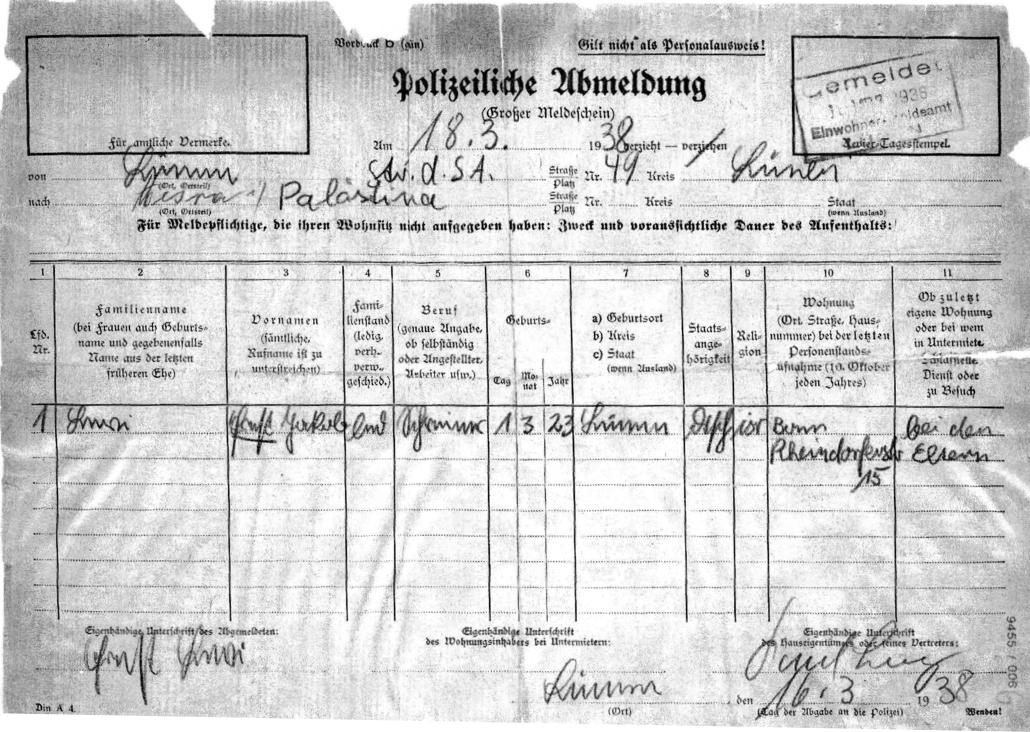 Vordruck D (grün)
Gilt nicht als Personalausweis!
Polizeiliche Abmeldung
(Großer Meldeschein)
Gemeldet
1938
Einwohnermeldeamt
Für amtliche Vermerke.
Am 18.3. 1938 verzieht — verziehen
Revier-Tagesstempel.
von Lünen Str. d. S.A. Straße Platz Nr. 49 Kreis Lünen
(Ort, Ortsteil)
nach Palästina Straße Platz Nr. Kreis Staat
(Ort, Ortsteil) (wenn Ausland)
Für Meldepflichtige, die ihren Wohnsitz nicht aufgegeben haben: Zweck und voraussichtliche Dauer des Aufenthalts:
1 2 3 4 5 6 7 8 9 10 11
Lfd. Nr.
Familienname
(bei Frauen auch Geburts-
name und gegebenenfalls
Name aus der letzten
früheren Ehe)
Vornamen
(sämtliche,
Rufname ist zu
unterstreichen)
Fami-
lienstand
(ledig,
verh.,
verw.,
geschied.)
Beruf
(genaue Angabe,
ob selbständig
oder Angestellter,
Arbeiter usw.)
Geburts-
Tag Mo-
nat Jahr
a) Geburtsort
b) Kreis
c) Staat
(wenn Ausland)
Staats-
ange-
hörigkeit
Reli-
gion
Wohnung
(Ort, Straße, Haus-
nummer) bei der letzten
Personenstands-
aufnahme (10. Oktober
jeden Jahres)
Ob zuletzt
eigene Wohnung
oder bei wem
in Untermiete,
Schlafstelle,
Dienst oder
zu Besuch
1 Ernst Jakob led 1 3 23 Lünen Dtsch isr Bonn bei den
Rheindorferstr Eltern
15
Eigenhändige Unterschrift des Abgemeldeten:
Eigenhändige Unterschrift
des Wohnungsinhabers bei Untermietern:
Eigenhändige Unterschrift
des Hauseigentümers oder seines Vertreters:
Ernst
Lünen, den 16.3 1938
(Ort) (Tag der Abgabe an die Polizei)
Din A 4.
Wenden!
9455 / 006